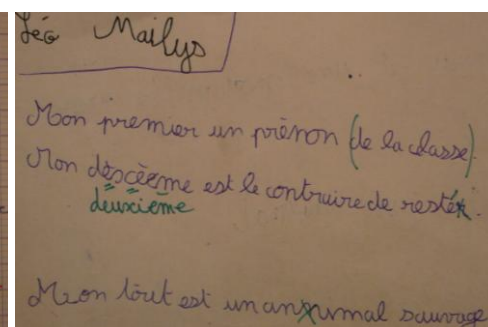 Léo Maïlys
Mon premier un prénom (de la classe).
Mon dèscèeme est le contraire de rester.
deuxième
Mon tout est un animal sauvage